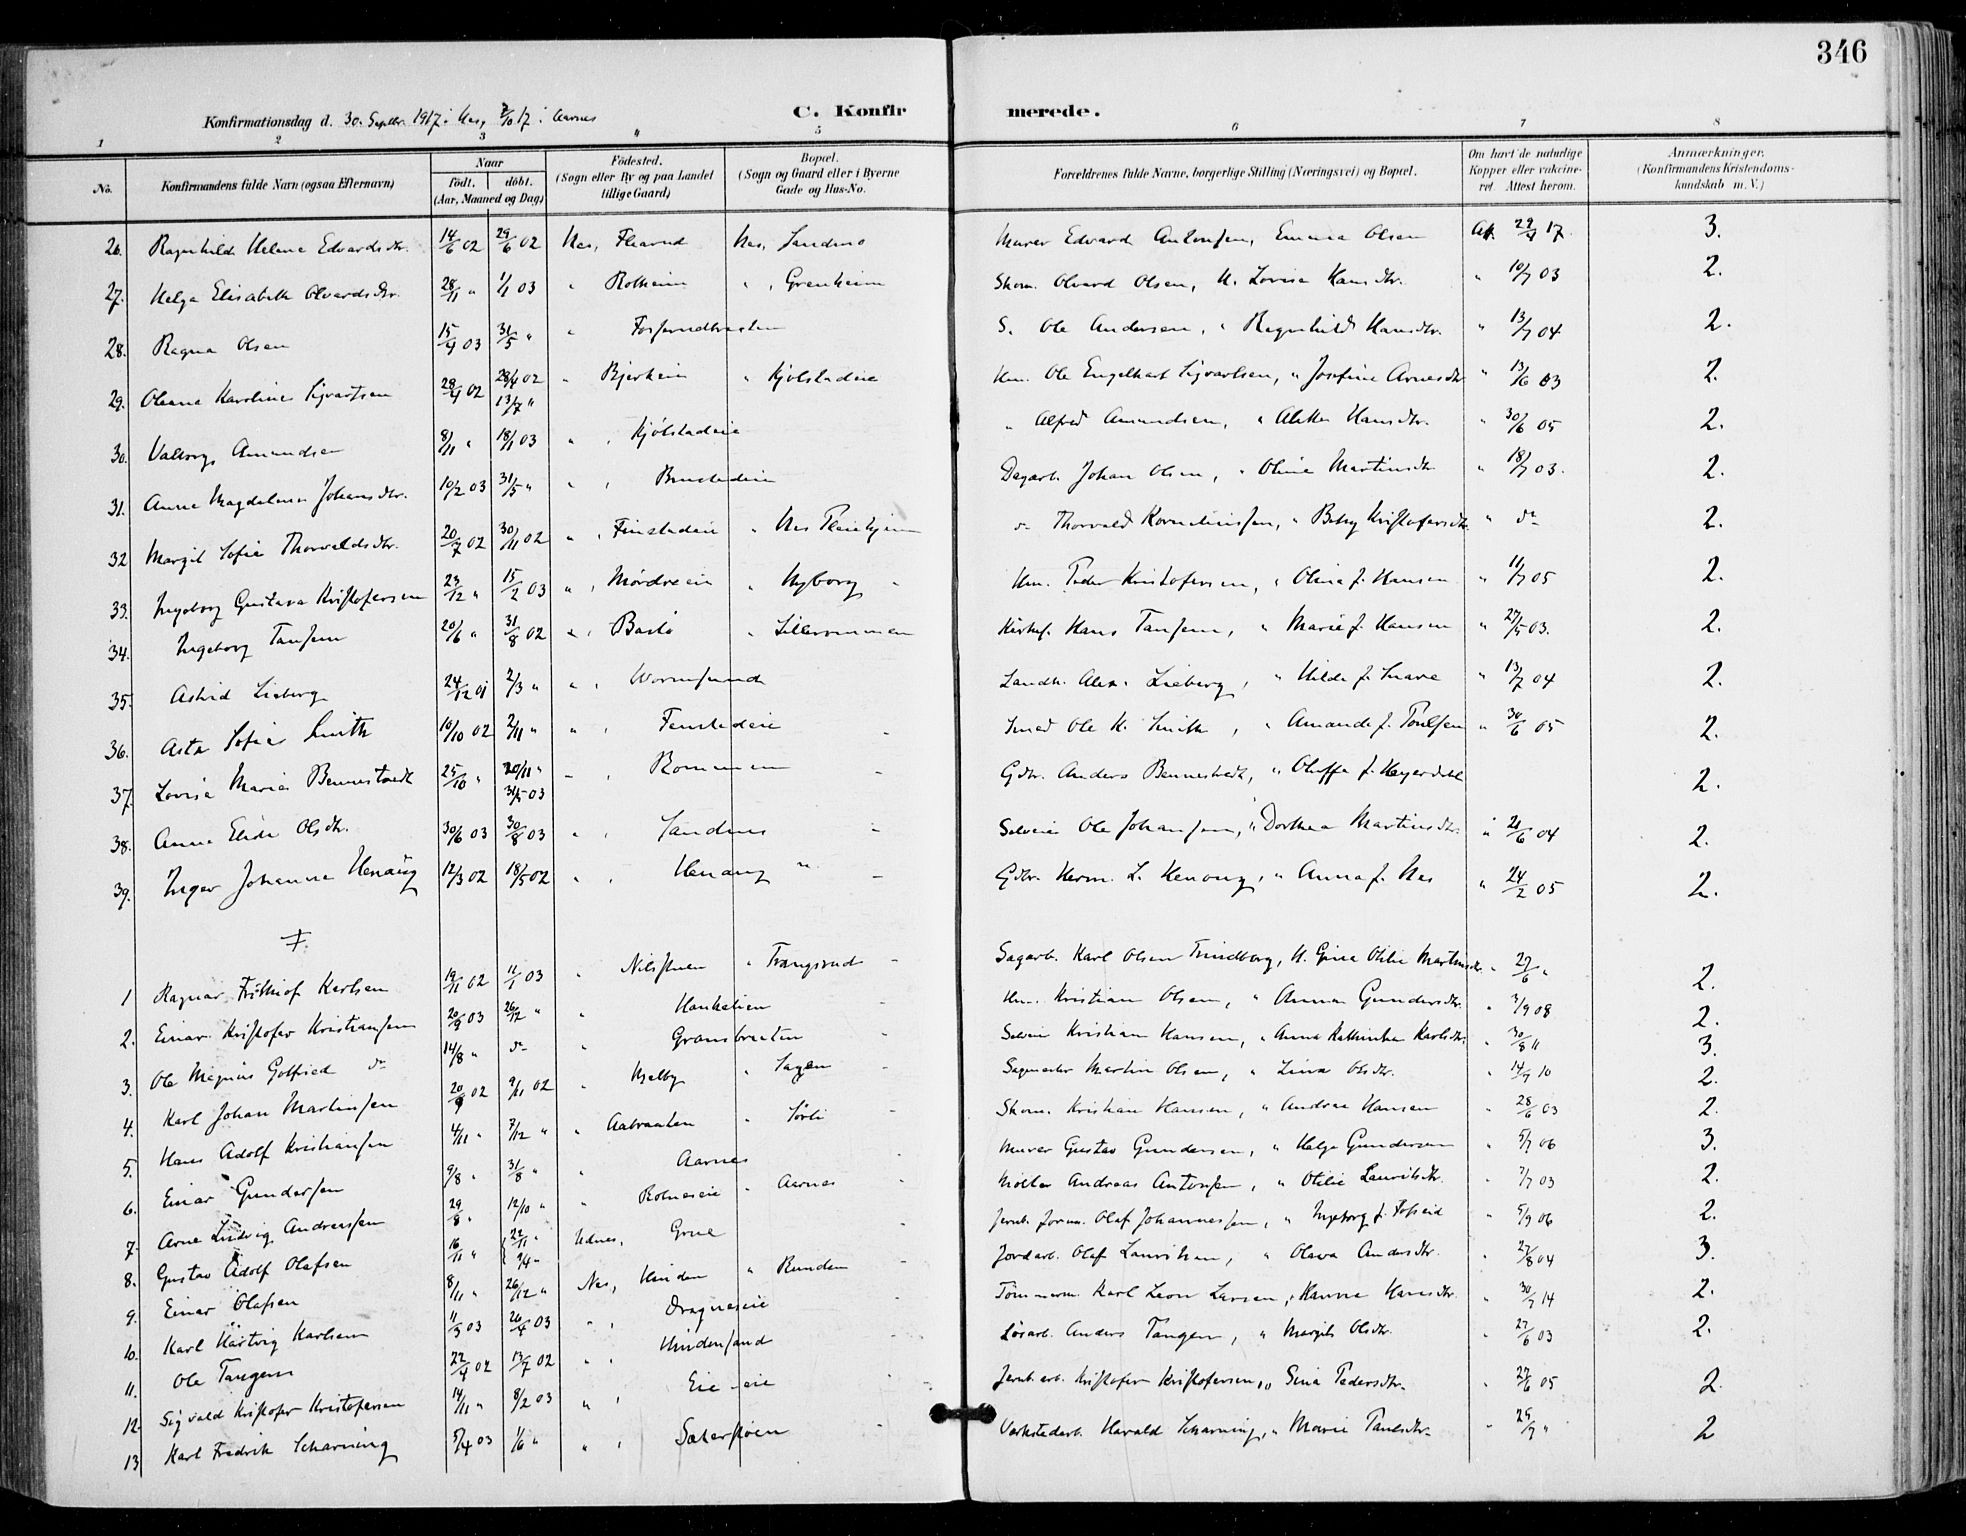 346
Konfirmationsdag d. 30. Septbr. 1917 i Nes, 7/10 17 i Aarnes
C. Konfirmerede.
1 2 3 4 5 6 7 8
No. Konfirmandens fulde Navn (ogsaa Efternavn) Naar födt. döbt. (Aar, Maaned og Dag) Födested. (Sogn eller By og paa Landet tillige Gaard) Bopæl. (Sogn og Gaard eller i Byerne Gade og Hus-No. Forældrenes fulde Navne, borgerlige Stilling (Næringsvei) og Bopæl. Om havt de naturlige Kopper eller vakcineret. Attest herom. Anmærkninger. (Konfirmandens Kristendomskundskab m. V.)
26. Ragnhild Helene Edvardsdtr. 14/6 02 29/6 02 Nes, Nes, Sandmo Murer Edvard Antonsen, Emma Olsen At. 17. 3.
27. Helga Elisabeth Olvardsdtr. 28/11 " 1/1 03 " Rotheim ", Grenheim Skom. Olvard Olsen, H. Lovise Hansdtr. " 10/7 03 2.
28. Ragna Olsen 15/4 03 31/5 " " S. Ole Andersen, " Ragnhild Hansdtr. " 13/7 04 2.
29. Oleane Karoline Sigvartsen 28/4 02 13/7 " " Bjerheim " Kjølstadeie Hm. Ole Engelhart Sigvartsen, " Josefine Arnesdtr. " 13/6 03 2.
30. Valborg Amundsen 9/11 " 18/1 03 ", Kjølstadeie " Alfred Amundsen, " Hansdtr. " 30/6 05 2.
31. Anne Magdalene Johansdtr. 10/2 03 31/5 " " , Dagarb. Johan Olsen, " Oline Martinsdtr. " 18/7 03. 2.
32 Margit Sofie Thorvaldsdtr. 20/7 02 30/11 02 ", Finstadeie " Nes Pleiehjem do Thorvald Korneliussen, " Betsy Kristofersdtr. " do 2.
33. Ingeborg Gustava Kristofersen 23/12 " 15/2 03 ", Mördreeie " Nyborg Hm. Peder Kristofersen, " Olina f. Hansen " 11/7 05 2.
34. Ingeborg Tansem 20/6 " 31/8 02 ", Bastø " Lillerommen Kirkes. Hans Tansem, " Marie f. Hansen " 27/5 03. 2.
35. Astrid Lieberg 24/12 01 2/3 " ", Wormsund Landh. Alex. Lieberg, " Hilda f. " 13/7 04 2.
36. Asta Sofie Smith 10/10 02 2/11 " ", Fenstadeie Smed Ole K. Smith, " Amanda f. Poulsen " 30/6 05 2.
37. Lovise Marie Bennestvedt 25/10 " 20/11 " 31/5 03 ", Rommen Gdbr. Anders Bennestvedt, " Oluffa f. Heyerdahl 2.
38. Anne Elise Olsdtr. 30/6 03 30/8 03 ", Sandnes Selveier Ole Johansen, " Dorthea Martinsdtr. " 21/6 04 2.
39. Inger Johanne Henaug 12/3 02 18/5 02 ", Henaug Gdbr. Herm. L. Henaug, " Anna f. Nes " 24/2 05 2.
1 Ragnar Frithiof Karlsen 19/11 02 11/1 03 " Nilsstuen " Trangsrud Sagarb. Karl Olsen Trindborg, H. Gina Otilie Martinsdtr. " 27/6 " 2.
2. Einar Kristofer Kristiansen 20/9 03 26/12 " " Hm. Kristian Olsen, " Anna Gundersdtr. " 3/9 08 2.
3. Ole Magnus Gotfried do 14/8 " do " Gransbraaten Selveier Kristian Hansen, " Anna Kathinka Karlsdtr. " 30/8 11 3.
4. Karl Johan Martinsen 20/9 02 9/11 02 " Hjelby " Sagen Sagmester Martin Olsen, " Lina Olsdtr. " 14/9 10 2.
5. Hans Adolf Kristiansen 4/11 " 7/12 " " Aabraaten " Sørli Skom. Kristian Hansen, " Andrea Hansen " 28/6 03 2.
6. Einar Gundersen 9/8 " 31/8 " " Aarnes Murer Gustav Gundersen, " Helga Gundersen " 5/7 06 3.
7. Arne Ludvig Andreassen 29/8 " 12/10 " " Rotneseie " Aarnes Møller Andreas Antonsen, " Otilie Lauritsdtr. " 7/7 03 2.
8. Gustav Adolf Olafsen 16/11 " 22/11 " Udnes, Grue Jernb. Form. Olaf Johannessen, " Ingeborg f. Fosseid " 5/9 06 2.
9. Einar Olafsen 8/11 " 26/12 " Nes, Hinden " Runden Jordarb. Olaf Lauritsen, " Olava Andersdtr. " 27/8 04 3.
10. Karl Hartvig Karlsen 11/3 03 26/4 03 ", Dragneseie Tömmerm. Karl Leon Larsen, " Hanna Hansdtr. " 30/7 14 2.
11. Ole Tangen 22/4 02 13/7 02 ", Hindensand Løsarb. Anders Tangen, " Margit Olsdtr. " 27/6 03 2.
12. Sigvald Kristofer Kristofersen 14/11 " 8/2 03 ", Eie Jernb. arb. Kristofer Kristofersen, " Sina Pedersdtr. " 27/6 05 2
13 Karl Fredrik Scharning 5/4 03 1/6 " ", Sæterstøen Verkstedarb. Harald Scharning, " Marie Paulsdtr. " 25/9 " 2